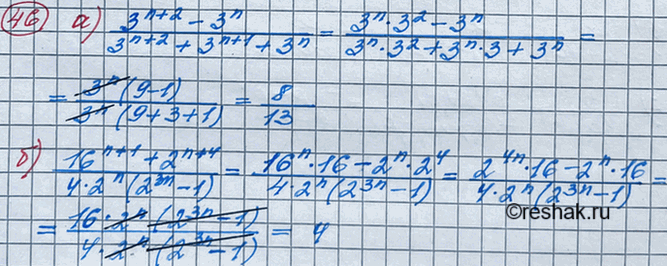 46 а) (3^{n+2} - 3^n)/(3^{n+2} + 3^{n+1} + 3^n) = (3^n · 3^2 - 3^n)/(3^n · 3^2 + 3^n · 3 + 3^n) =
= (3^n (9-1))/(3^n (9+3+1)) = 8/13
б) (16^{n+1} + 2^{n+4})/(4 · 2^n (2^{3n} - 1)) = (16^n · 16 - 2^n · 2^4)/(4 · 2^n (2^{3n} - 1)) = (2^{4n} · 16 - 2^n · 16)/(4 · 2^n (2^{3n} - 1)) =
©reshak.ru
= (16 · 2^n (2^{3n} - 1))/(4 · 2^n (2^{3n} - 1)) = 4